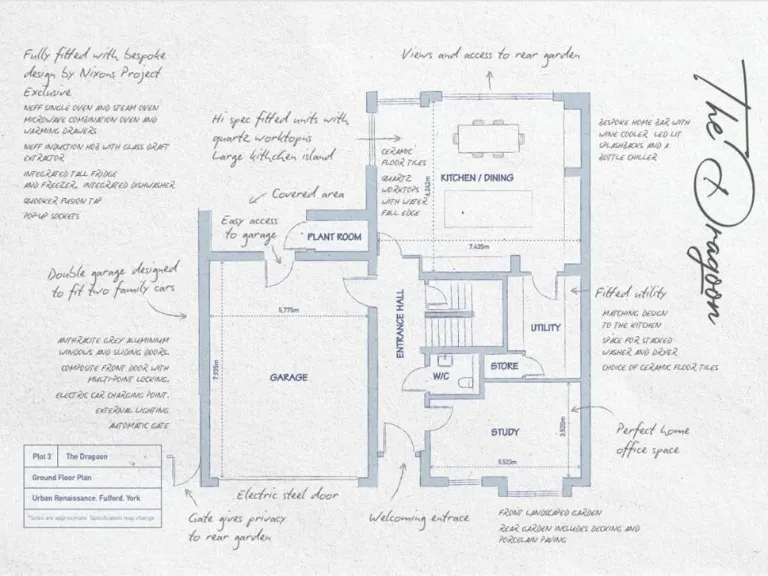 Fully fitted with bespoke
design by Nixons Project
Exclusive
NEFF SINGLE OVEN AND STEAM OVEN
MICROWAVE COMBINATION OVEN AND
WARMING DRAWERS
NEFF INDUCTION HOB WITH GLASS DRAFT
EXTRACTOR
INTEGRATED TALL FRIDGE
AND FREEZER, INTEGRATED DISHWASHER
QUOOKER FUSION TAP
POP-UP SOCKETS
Hi spec fitted units with
quartz worktopns
Large kithchen island
Covered area
Easy access
to garage
Views and access to rear garden
The Dragoon
BESPOKE HOME BAR WITH
WINE COOLER LED LIT
SPLASHBACKS AND A
BOTTLE CHILLER
CERAMIC
FLOOR TILES
QUARTZ
WORKTOPS
WITH WATER
FALL EDGE
KITCHEN / DINING
6.242m
7.435m
PLANT ROOM
Double garage designed
to fit two family cars
ANTHRACITE GREY ALUMINIUM
WINDOWS AND SLIDING DOORS.
COMPOSITE FRONT DOOR WITH
MULTI-POINT LOCKING.
ELECTRIC CAR CHARGING POINT.
EXTERNAL LIGHTING
AUTOMATIC GATE
5.775m
GARAGE
ENTRANCE HALL
UTILITY
STORE
W/C
STUDY
5.523m
3.520m
Fitted utility
MATCHING DESIGN
TO THE KITCHEN
SPACE FOR STACKED
WASHER AND DRYER
CHOICE OF CERAMIC FLOOR TILES
Perfect home
office space
Plot 3 The Dragoon
Ground Floor Plan
Urban Renaissance, Fulford, York
*Sizes are approximate. Specification may change
Electric steel door
Gate gives privacy
to rear garden
Welcoming entrace
FRONT LANDSCAPED GARDEN
REAR GARDEN INCLUDES DECKING AND
PORCELAIN PAVING